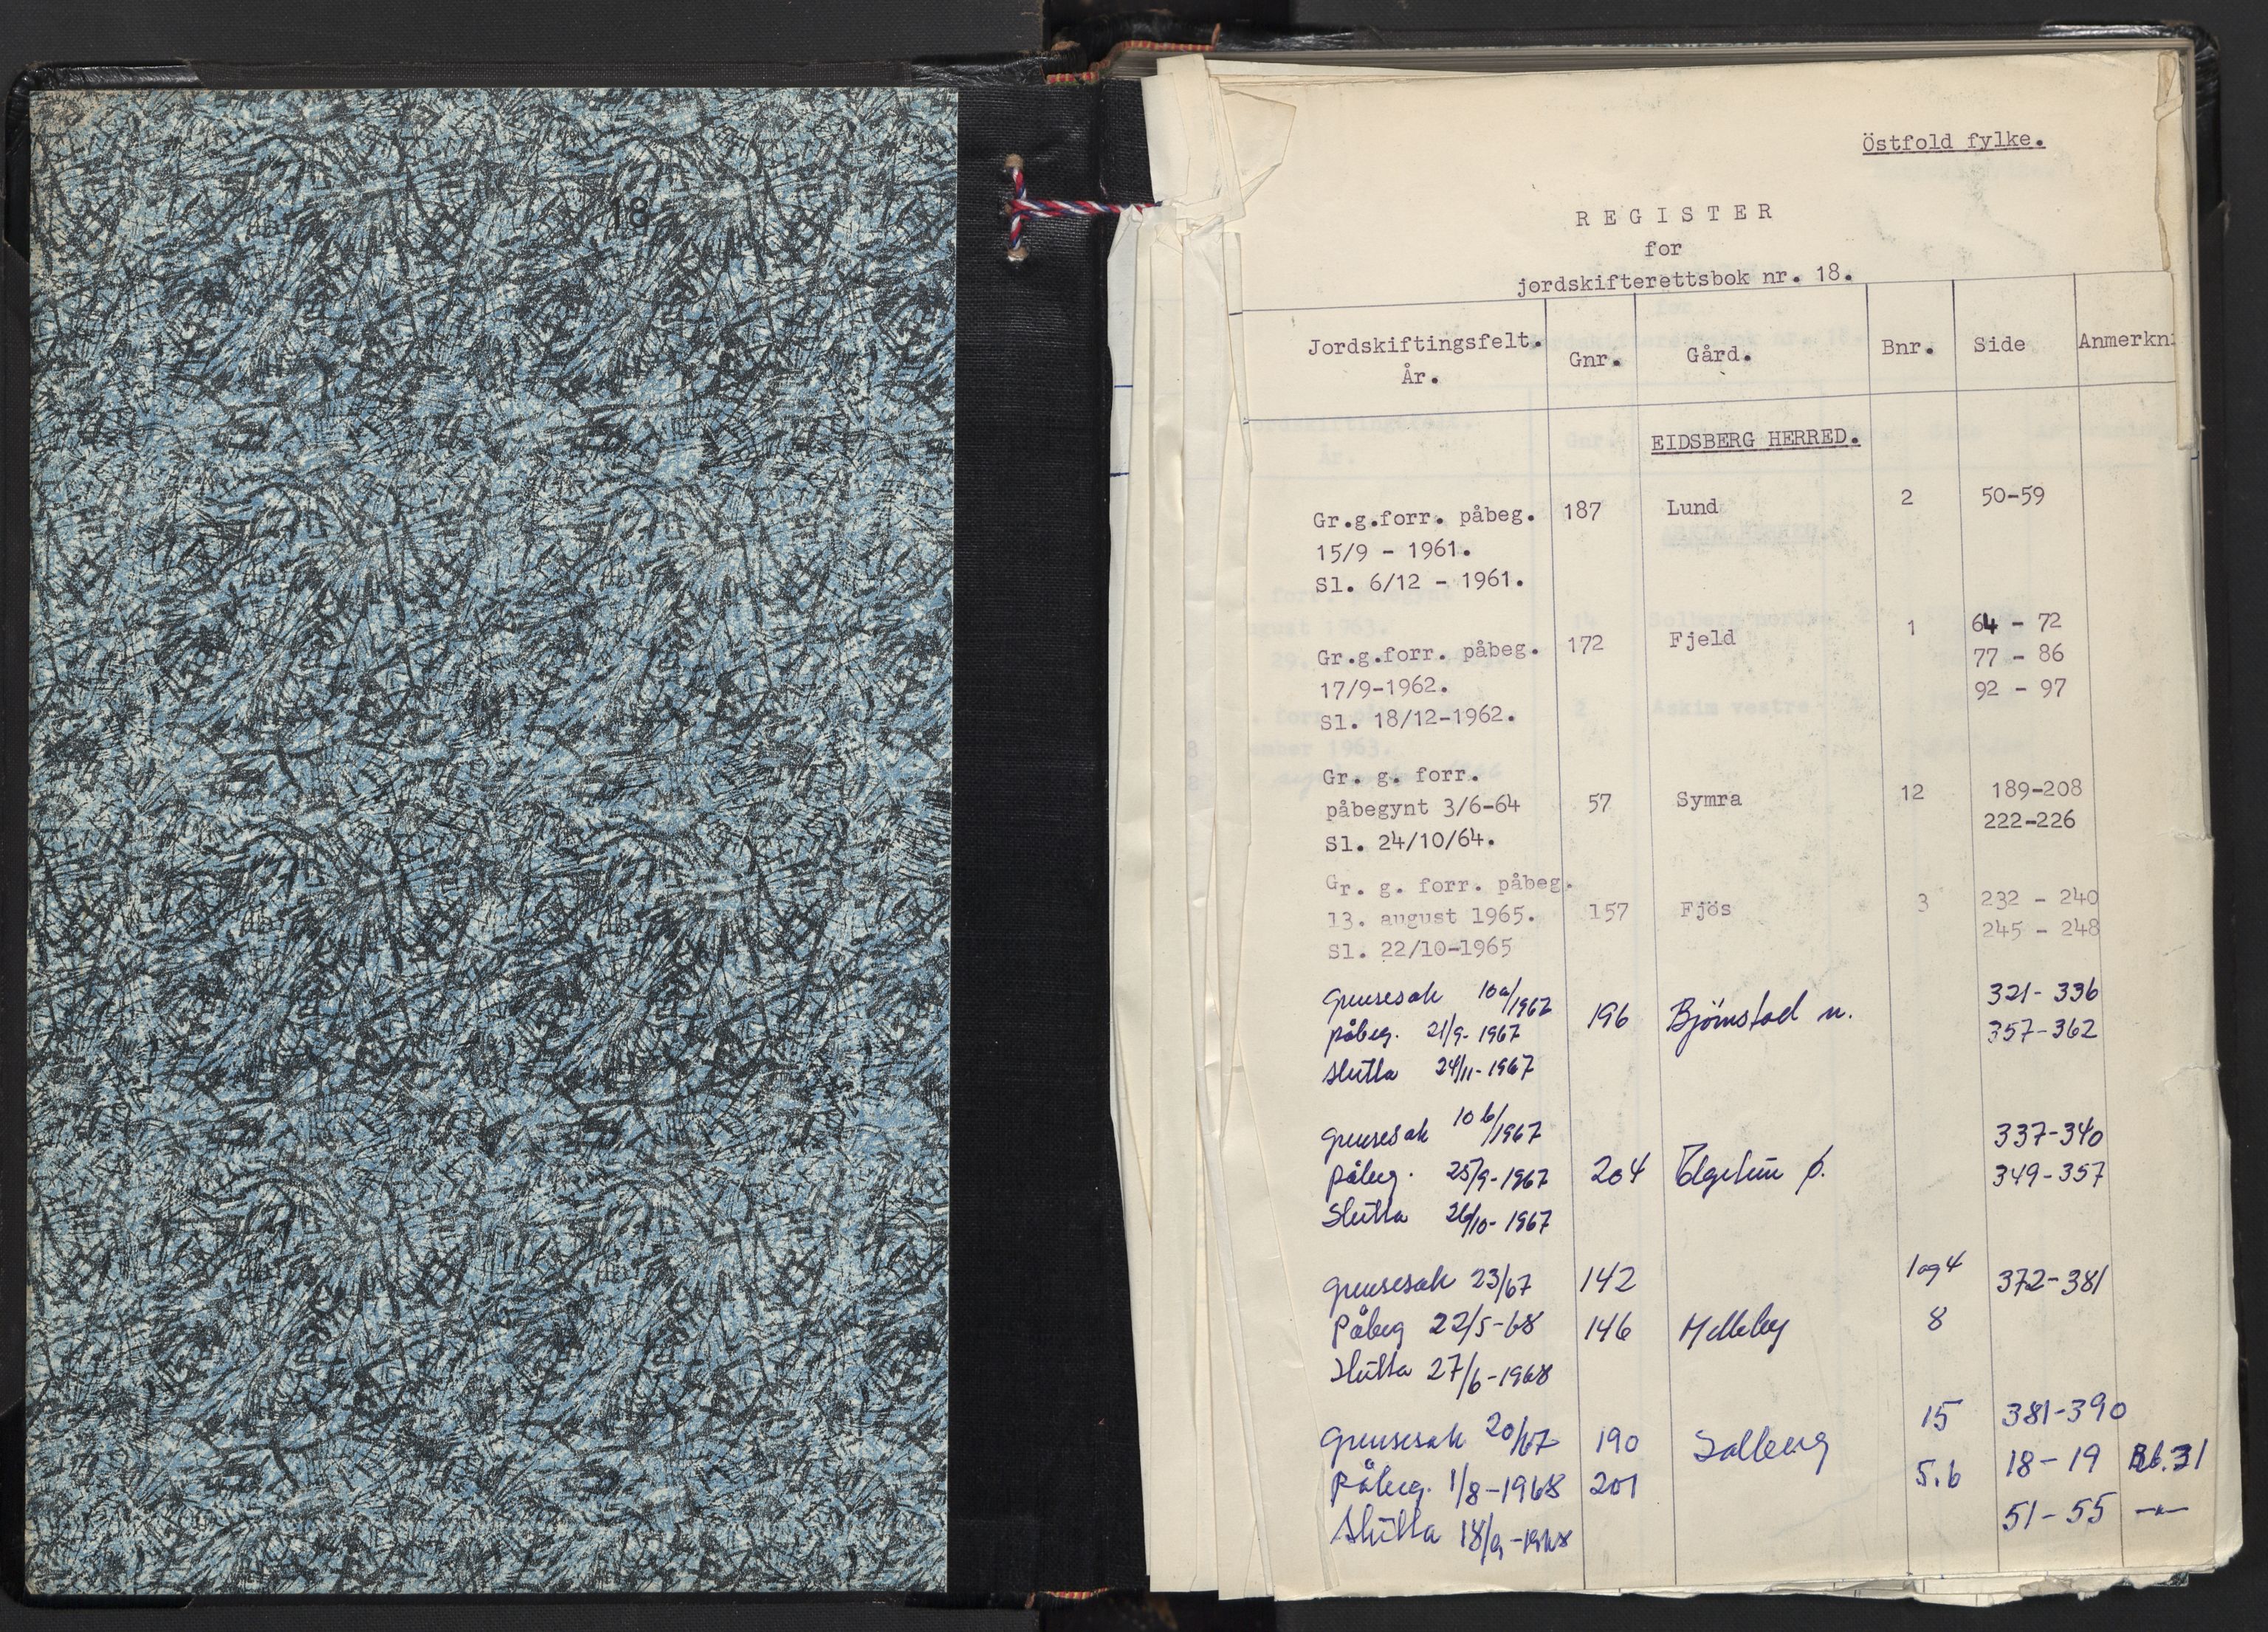 18
Östfold fylke.
REGISTER
for
jordskifterettsbok nr. 18.
Jordskiftingsfelt. År. Gnr. Gård. Bnr. Side Anmerkni
EIDSBERG HERRED.
Gr.g.forr. påbeg. 187 Lund 2 50-59
15/9 - 1961.
Sl. 6/12 - 1961.
Gr.g.forr. påbeg. 172 Fjeld 1 64 - 72
17/9-1962. 77 - 86
Sl. 18/12-1962. 92 - 97
Gr. g. forr. 189-208
påbegynt 3/6-64 57 Symra 12 222-226
Sl. 24/10/64.
Gr. g. forr. påbeg. 232 - 240
13. august 1965. 157 Fjös 3 245 - 248
Sl. 22/10-1965
Grensesak 10a/1967 321-336
påbeg. 21/9-1967 196 Bjørnstad n. 357-362
Slutta 24/11-1967
Grensesak 10b/1967 337-340
påbeg. 25/9-1967 204 ø. 349-357
Slutta 26/10-1967
Grensesak 23/67 142 1 og 4 372-381
Påbeg 22/5-68 146 Melleby 8
Slutta 27/6-1968
Grensesak 20/67 190 Solberg 15 381-390
Påbeg. 1/8-1968 201 5.6 18-19 Rb.31
Slutta 18/9-1968 51-55 -"-